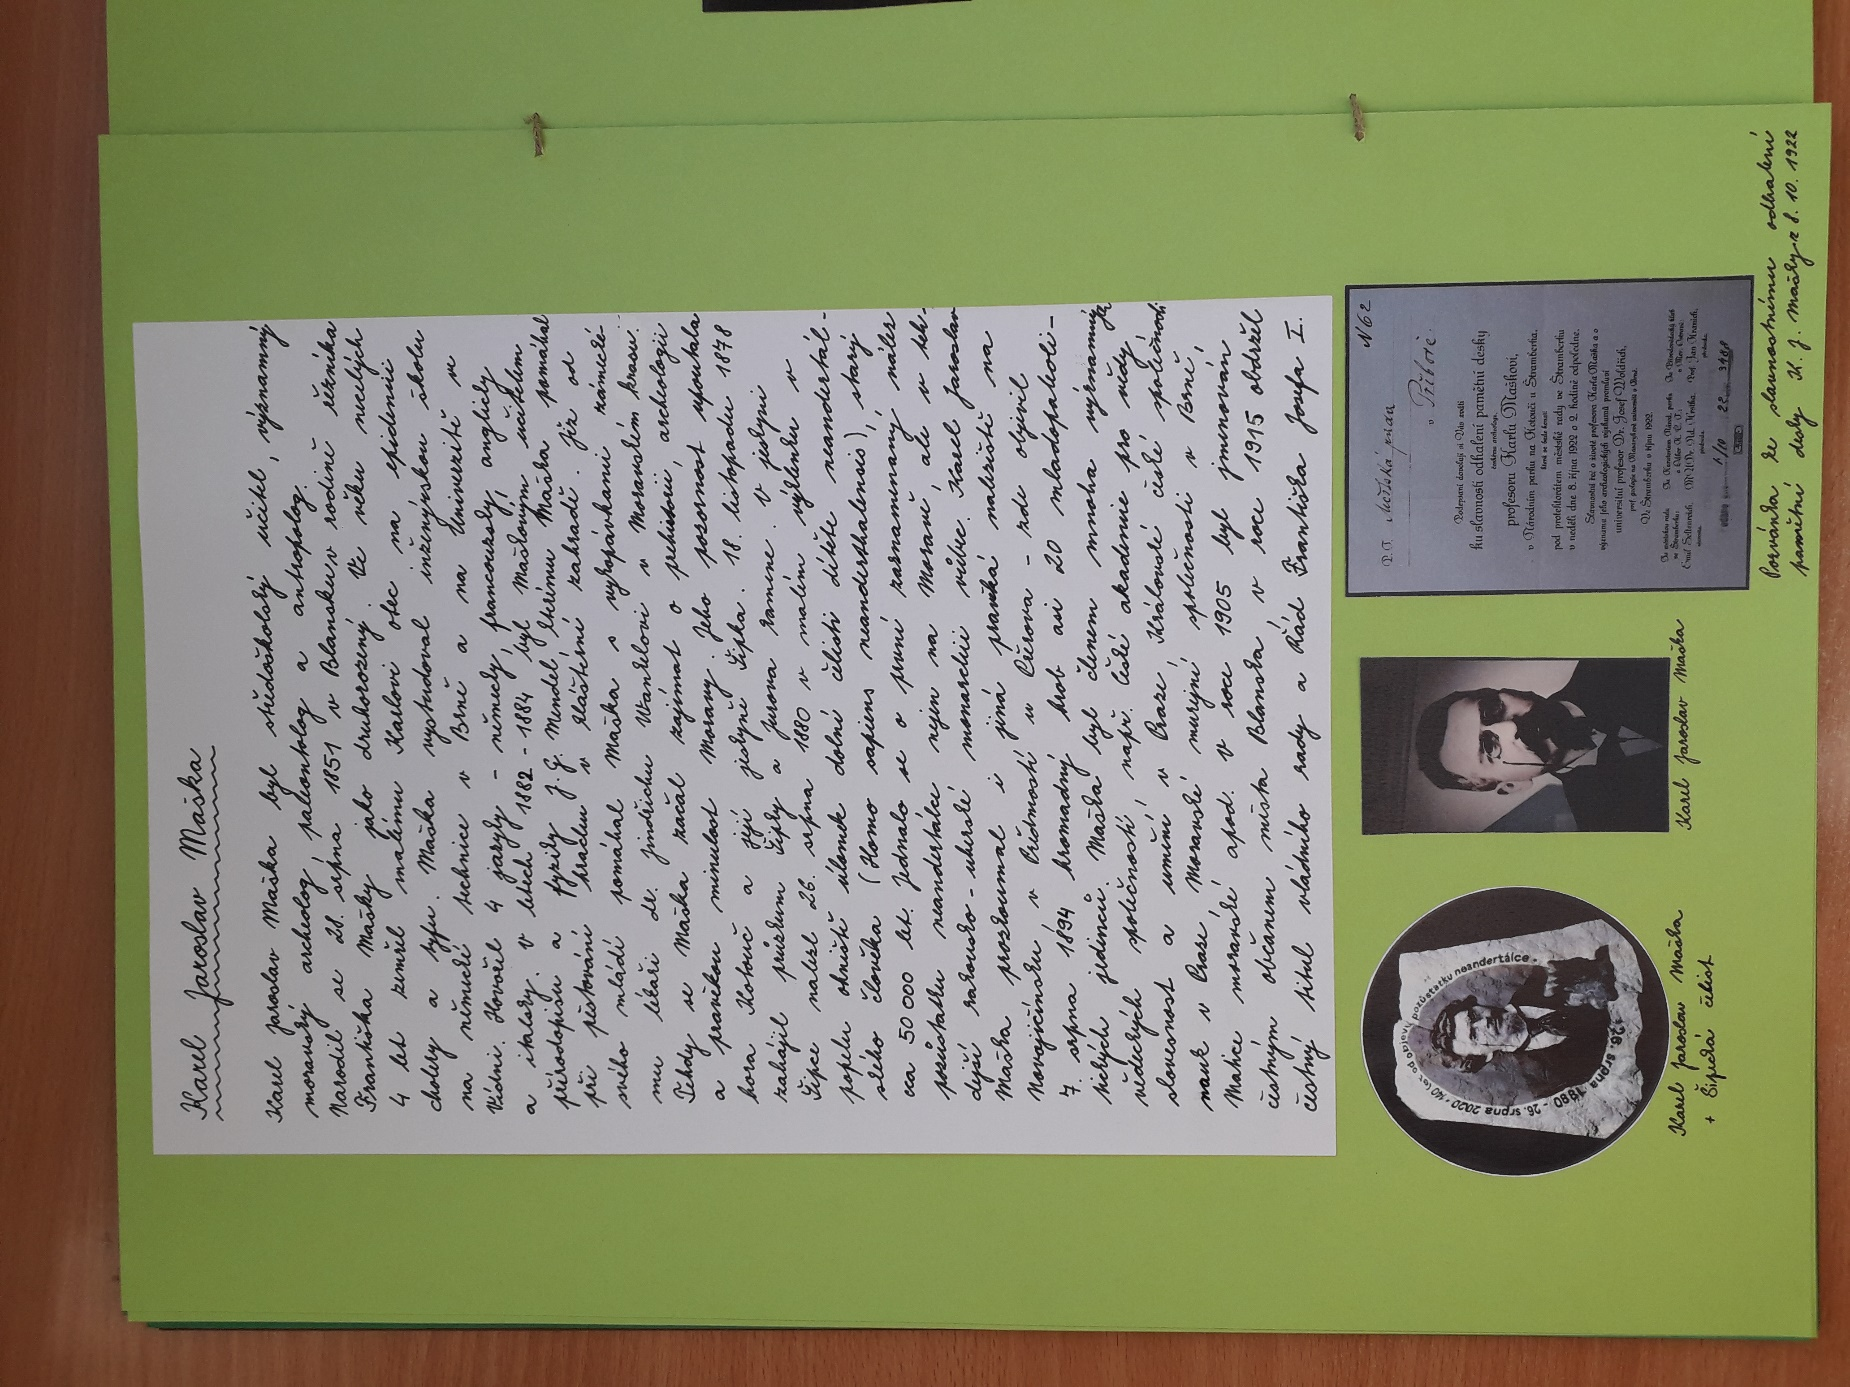 Karel Jaroslav Maška
Karel Jaroslav Maška byl středoškolský učitel, významný
moravský archeolog, paleontolog a antropolog.
Narodil se 28. srpna 1851 v Blansku, v rodině řezníka
Františka Mašky jako druhorozený. Ve věku necelých
4 let zemřel malému Karlovi otec na epidemii
cholery a tyfu. Maška vystudoval inženýrskou školu
na německé technice v Brně a na Univerzitě ve
Vídni. Hovořil 4 jazyky - německy, francouzsky, anglicky
a italsky. V letech 1882 - 1884 byl Maškovým učitelem
přírodopisu a fyziky J. G. Mendel, kterému Maška pomáhal
při pěstování hrachu v klášterní zahradě. Již od
svého mládí pomáhal Maška s vykopávkami zámecké-
mu lékaři dr. Jindřichu Wankelovi v Moravském krasu.
Tehdy se Maška začal zajímat o prehistorii, archeologii
a pravěkou minulost Moravy. Jeho pozornost upoutala
hora Kotouč a její jeskyně Šipka. 18. listopadu 1878
zahájil průzkum Šipky a Jurova kamene v jeskyni
Šipce nalezl 26. srpna 1880 v malém výklenku v
popelu ohniště úlomek dolní čelisti dítěte neandertál-
ského člověka (Homo sapiens neanderthalensis), starý
cca 50 000 let. Jednalo se o první zaznamenaný nález
pozůstatku neandertálce nejen na Moravě, ale v teh-
dejší rakousko - uherské monarchii vůbec. Karel Jaroslav
Maška prozkoumal i jiná pravěká naleziště na
Novojičínsku v Předmostí u Přerova - zde objevil
7. srpna 1894 hromadný hrob asi 20 mladopaleoli-
tických jedinců. Maška byl členem mnoha významných
vědeckých společností, např. České akademie pro vědy
slovesnost a umění v Praze, Královské české společnosti
nauk v Praze, Moravské muzejní společnosti v Brně,
Matice moravské apod. V roce 1905 byl jmenován
čestným občanem města Blanska v roce 1915 obdržel
čestný titul vládního rady a Řád Františka Josefa I.
140 let od objevu pozůstatku neandertálce
* 26. srpna 1880 - 26. srpna 2020 *
Karel Jaroslav Maška
+ Šipecká čelist
Karel Jaroslav Maška
N 62
P. T.
v Příboře.
Podepsaní dovolují si Vás zváti
ku slavnosti odhalení pamětní desky
profesoru Karlu Maškovi,
v Národním parku na Kotouči u Štramberka,
která se bude konati
pod protektorátem městské rady ve Štramberku
v neděli dne 8. října 1922 o 2. hodině odpoledne.
Slavnostní řeč o životě profesora Karla Mašky a o
významu jeho archeologických výzkumů promluví
universitní profesor Dr. Josef Woldřich,
Ve Štramberku v říjnu 1922.
Pozvánka ke slavnostnímu odhalení
pamětní desky K. J. Mašky z 8. 10. 1922